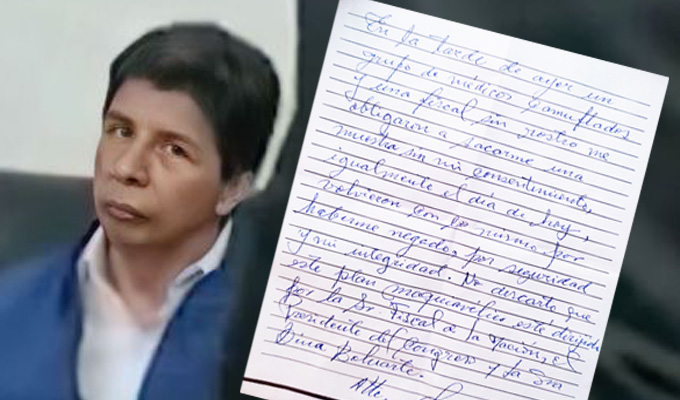 En la tarde de ayer un
grupo de médicos camuflados
y una fiscal sin rostro me
obligaron a sacarme una
muestra sin mi consentimiento,
igualmente el día de hoy,
volvieron con lo mismo por
haberme negado, por seguridad
y mi integridad. No descarto que
este plan maquiavélico este dirigido
por la Sr. Fiscal a la Nación, el
Presidente del Congreso y la Sra
Dina Boluarte.
Atte